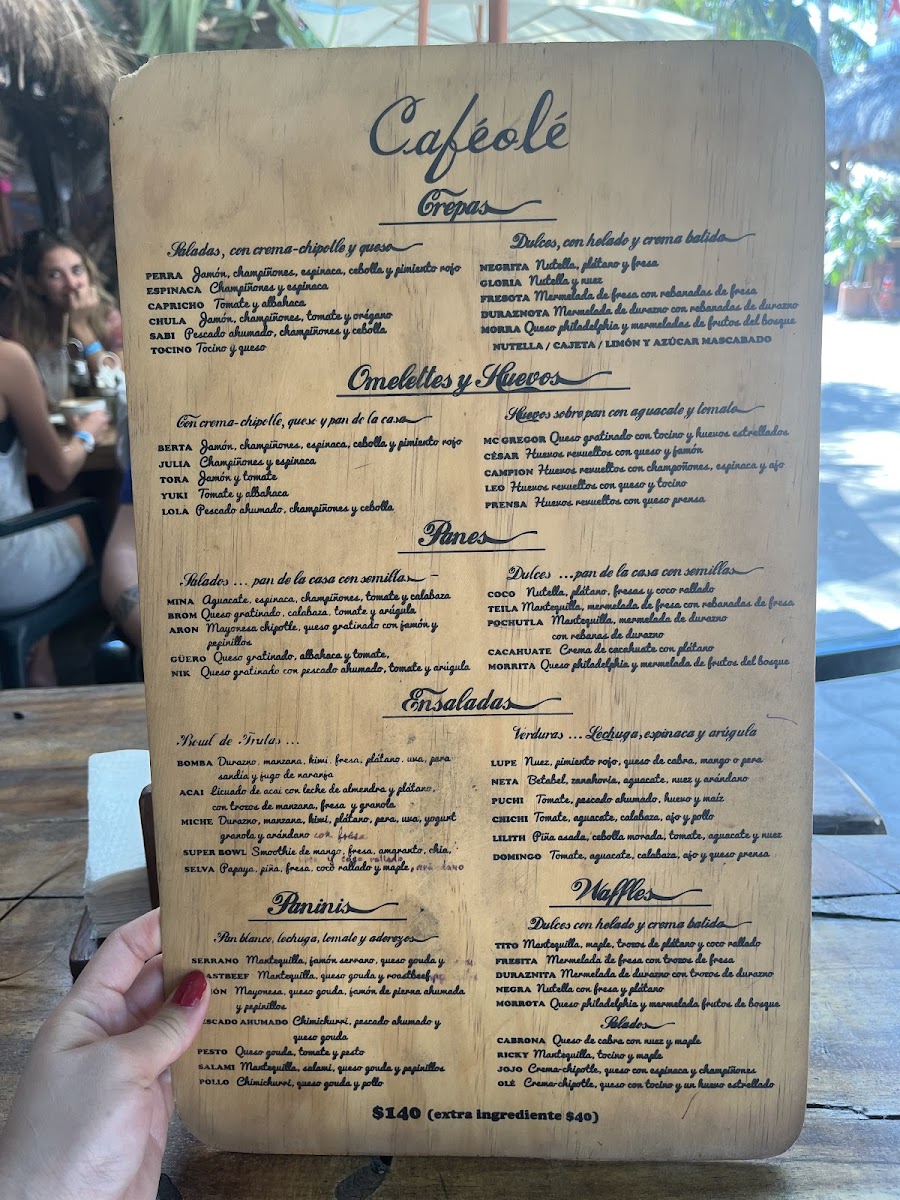 Caféolé
Crepas
Saladas, con crema-chipotle y queso
PERRA Jamón, champiñones, espinaca, cebolla y pimiento rojo
ESPINACA Champiñones y espinaca
CAPRICHO Tomate y albahaca
CHULA Jamón, champiñones, tomate y orégano
SABI Pescado ahumado, champiñones y cebolla
TOCINO Tocino y queso
Dulces, con helado y crema batida
NEGRITA Nutella, plátano y fresa
GLORIA Nutella y nuez
FRESOTA Mermelada de fresa con rebanadas de fresa
DURAZNOTA Mermelada de durazno con rebanadas de durazno
MORRA Queso philadelphia y mermeladas de frutos del bosque
NUTELLA / CAJETA / LIMÓN Y AZÚCAR MASCABADO
Omelettes y Huevos
Con crema-chipotle, queso y pan de la casa
BERTA Jamón, champiñones, espinaca, cebolla y pimiento rojo
JULIA Champiñones y espinaca
TORA Jamón y tomate
YUKI Tomate y albahaca
LOLA Pescado ahumado, champiñones y cebolla
Huevos sobre pan con aguacate y tomate
MC GREGOR Queso gratinado con tocino y huevos estrellados
CÉSAR Huevos revueltos con queso y jamón
CAMPION Huevos revueltos con champoñones, espinaca y ajo
LEO Huevos revueltos con queso y tocino
PRENSA Huevos revueltos con queso prensa
Panes
Salados ... pan de la casa con semillas
MINA Aguacate, espinaca, champiñones, tomate y calabaza
BROM Queso gratinado, calabaza, tomate y arúgula
ARON Mayonesa chipotle, queso gratinado con jamón y
pepinillos
GÜERO Queso gratinado, albahaca y tomate,
NIK Queso gratinado con pescado ahumado, tomate y arúgula
Dulces ...pan de la casa con semillas
COCO Nutella, plátano, fresas y coco rallado
TEILA Mantequilla, mermelada de fresa con rebanadas de fresa
POCHUTLA Mantequilla, mermelada de durazno
con rebanas de durazno
CACAHUATE Crema de cacahuate con plátano
MORRITA Queso philadelphia y mermelada de frutos del bosque
Ensaladas
Bowl de Frutas ...
BOMBA Durazno, manzana, kiwi, fresa, plátano, uva, pera
sandía y jugo de naranja
ACAI Licuado de acai con leche de almendra y plátano,
con trozos de manzana, fresa y granola
MICHE Durazno, manzana, kiwi, plátano, pera, uva, yogurt
granola y arándano con fresa
SUPER BOWL Smoothie de mango, fresa, amaranto, chia,
y coco rallado
SELVA Papaya, piña, fresa, coco rallado y maple, arándano
Verduras ... Lechuga, espinaca y arúgula
LUPE Nuez, pimiento rojo, queso de cabra, mango o pera
NETA Betabel, zanahoria, aguacate, nuez y arándano
PUCHI Tomate, pescado ahumado, huevo y maíz
CHICHI Tomate, aguacate, calabaza, ajo y pollo
LILITH Piña asada, cebolla morada, tomate, aguacate y nuez
DOMINGO Tomate, aguacate, calabaza, ajo y queso prensa
Paninis
Pan blanco, lechuga, tomate y aderezos
SERRANO Mantequilla, jamón serrano, queso gouda y
ASTBEEF Mantequilla, queso gouda y roastbeef
ÓN Mayonesa, queso gouda, jamón de pierna ahumada
y pepinillos
ESCADO AHUMADO Chimichurri, pescado ahumado y
queso gouda
PESTO Queso gouda, tomate y pesto
SALAMI Mantequilla, salami, queso gouda y pepinillos
POLLO Chimichurri, queso gouda y pollo
Waffles
Dulces con helado y crema batida
TITO Mantequilla, maple, trozos de plátano y coco rallado
FRESITA Mermelada de fresa con trozos de fresa
DURAZNITA Mermelada de durazno con trozos de durazno
NEGRA Nutella con fresa y plátano
MORROTA Queso philadelphia y mermelada frutos del bosque
Salados
CABRONA Queso de cabra con nuez y maple
RICKY Mantequilla, tocino y maple
JOJO Crema-chipotle, queso con espinaca y champiñones
OLÉ Crema-chipotle, queso con tocino y un huevo estrellado
$140 (extra ingrediente $40)